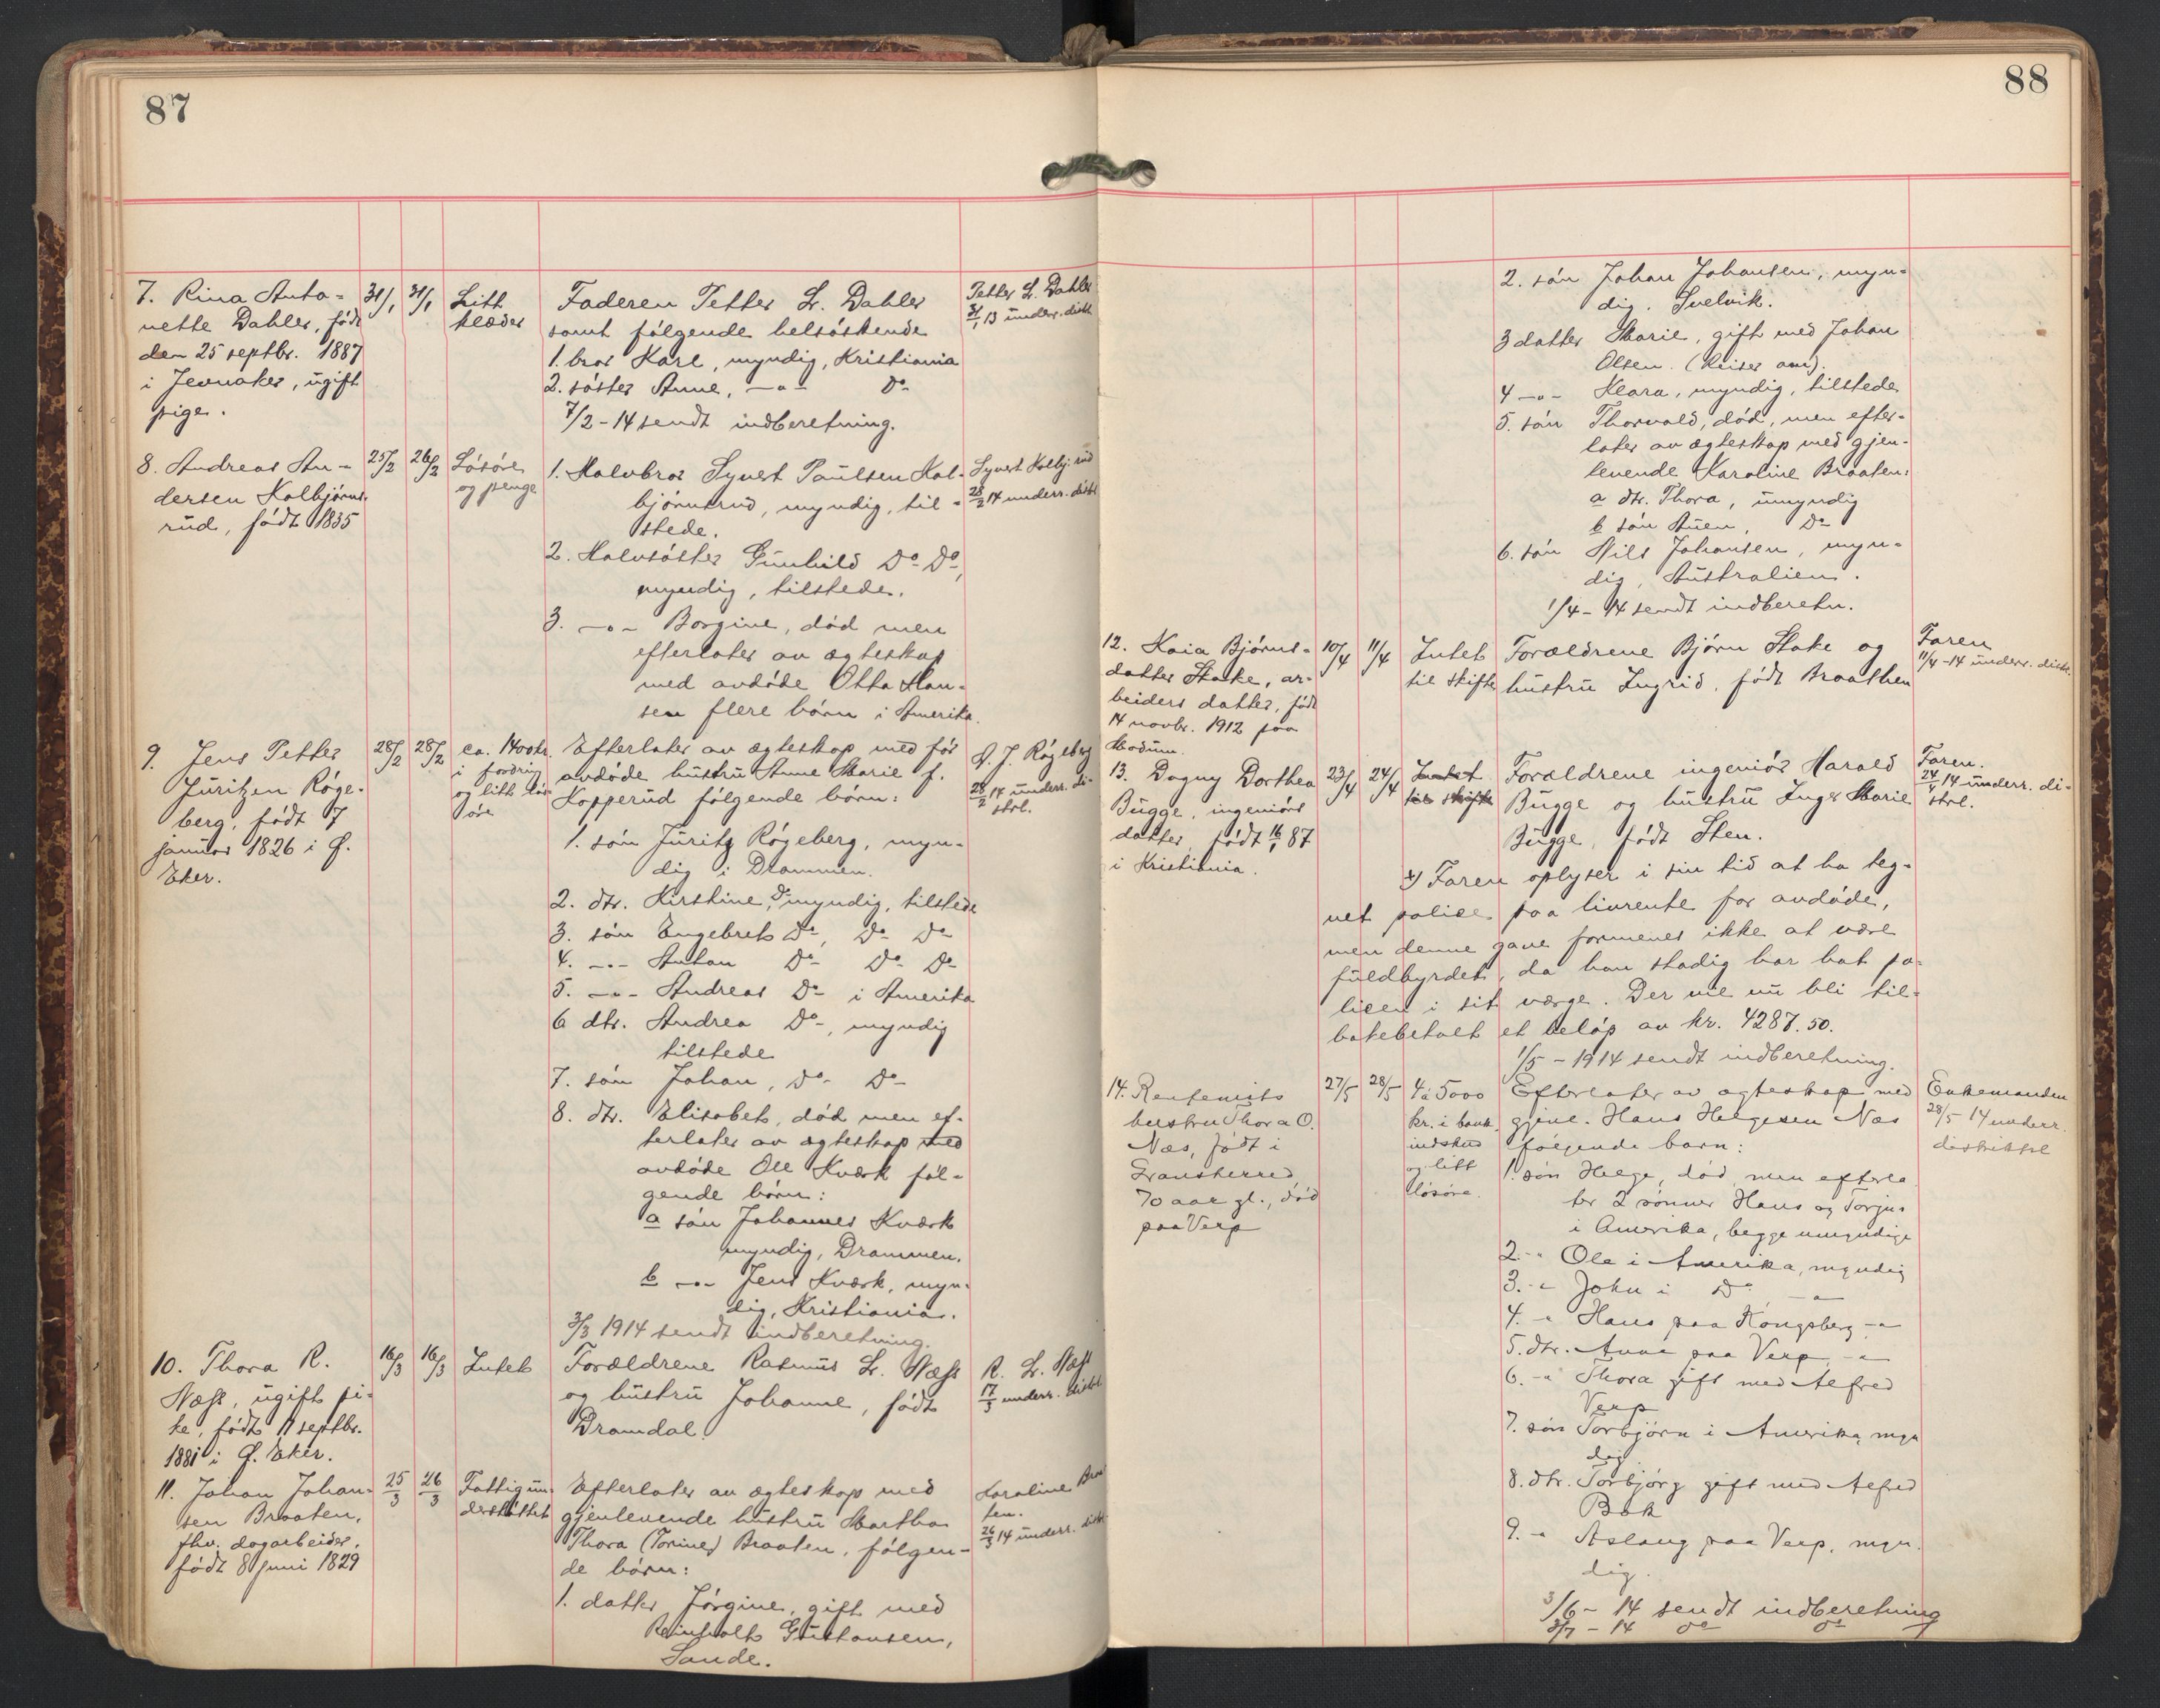 87
7. Rina Anto-
nette Dahler, født
den 25 septbr. 1887
i Jevnaker, ugift
pige.
31/1 31/1
Litt
klæder
Faderen Petter L. Dahler
samt følgende helsøskende
1. bror Karl, myndig, Kristiania
2. søster Anne, -"- Do
7/2-14 sendt indberetning.
Petter L. Dahler
31/1 13 underr. distr.
8. Andreas An-
dersen Kolbjørns-
rud, født 1835
25/2 26/2
Løsøre
og penge
1. Halvbror Syvert Paulsen Kol-
bjørnsrud, myndig, til-
stede.
2. Halvsøster Gunhild Do Do,
myndig, tilstede.
3. -"- Borgine, død men
efterlater av ægteskap
med avdøde Otto Han-
sen flere børn i Amerika.
Syvert Kolbj.rud
28/2 14 underr. distr.
9. Jens Petter
Juritzen Røge-
berg, født 7
januar 1826 i Ø.
Eker.
28/2 28/2
ca. 1400 kr.
i fordring
og litt løs-
øre
Efterlater av ægteskap med før
avdøde hustru Anne Marie f.
Kopperud følgende børn:
1. søn Juritz Røgeberg, myn-
dig i Drammen.
2. dtr. Kirstine, Do myndig, tilstede
3. søn Engebret Do, Do Do
4. -"- Anton Do Do Do
5. -"- Andreas Do i Amerika
6 dtr. Andrea Do, myndig
tilstede
7. søn Johan, Do Do
8. dtr. Elisabet, død men ef-
terlater av ægteskap med
avdøde Ole Kværk føl-
gende børn:
a søn Johannes Kværk
myndig, Drammen.
b -"- Jens Kværk, myn-
dig, Kristiania.
3/3 1914 sendt indberetning.
J. Røgeberg
28/2 14 underr. di-
strl.
10. Thora R.
Næss, ugift pi-
ke, født 11 septbr.
1881 i Ø. Eker.
16/3 16/3
Intet
Forældrene Rasmus L. Næss
og hustru Johanne, født
Dramdal.
R. L. Næss
17/3 underr. distr.
11. Johan Johan-
sen Braaten,
fhv. dagarbeider,
født 8 juni 1829
25/3 26/3
Fattigun-
derstøttet
Efterlater av ægteskap med
gjenlevende hustru Martha
Thora (Torine) Braaten, følgen-
de børn:
1. datter Jørgine, gift med
Reinholt Gustansen,
Sande.
Karoline Braa
ten.
26/3 14 underr. distr.
88
2. søn Johan Johansen, myn-
dig, Svelvik.
3 datter Marie, gift med Johan
Olsen. (Reiser om).
4 -"- Klara, myndig, tilstede
5. søn Thorvald, død, men efter-
later av ægteskap med gjen-
levende Karoline Braaten:
a dtr. Thora, umyndig
b søn Auen, Do
6. søn Nils Johansen, myn-
dig, Australien.
1/4-14 sendt indberetn.
12. Kaia Bjørns-
datter Stake, ar-
beiders datter, født
14 novbr. 1912 paa
Modum.
10/4 11/4
Intet
til skifte
Forældrene Bjørn Stake og
hustru Ingrid, født Braathen
Faren
11/4-14 underr. distr.
13. Dagny Dorthea
Bugge, ingeniørs
datter, født 16/1 87
i Kristiania.
23/4 24/4
Intet
til skifte
Forældrene ingeniør Harald
Bugge og hustru Inger Marie
Bugge, født Sten.
x) Faren oplyser i sin tid at ha teg-
net polise paa livrente for avdøde,
men denne gave formenes ikke at være
fuldbyrdet, da han stadig har hat po-
licen i sit værge. Der vil nu bli til-
bakebetalt et beløp av kr. 4287.50.
1/5-1914 sendt indberetning.
Faren.
24/4 14 underr. di-
strl.
14. Rentenists
hustru Thora O.
Næs, født i
Gransherred
70 aar gl., død
paa Verp
27/5 28/5
4 à 5000
kr. i bank-
indskud
og litt
løsøre.
Efterlater av ægteskap med
gjenl. Hans Helgesen Næs
følgende barn:
1. søn Helge, død, men efterla
ter 2 sønner Hans og Torjus
i Amerika, begge umyndige
2. -" Ole i Amerika, myndig
3. -" John i Do -"-
4. -" Hans paa Kongsberg -"
5. dtr. Anne paa Verp -"
6. -" Thora gift med Alfred
Verp
7. søn Torbjørn i Amerika, myn
dig
8. dtr. Torbjørg gift med Alfred
Bak
9. -" Aslaug paa Verp, myn-
dig.
3/6-14 sendt indberetning
3/7-14 do do
Enkemanden
28/5 14 underr.
distriktsl